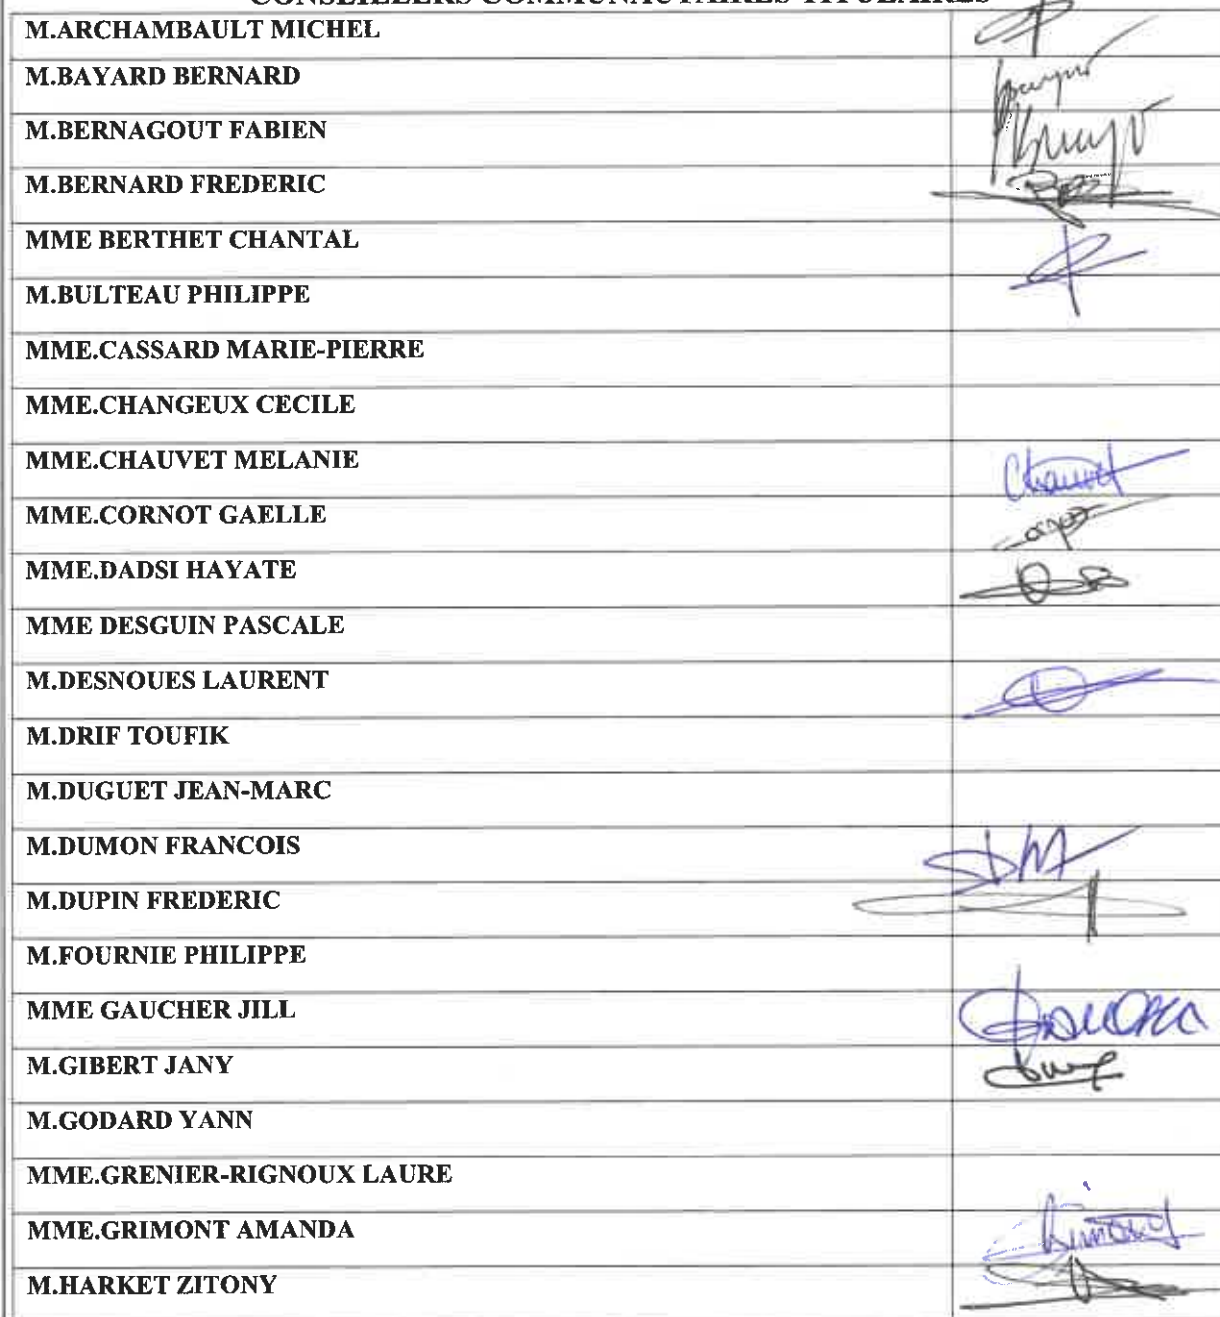 CONSEILLERS COMMUNAUTAIRES TITULAIRES
M.ARCHAMBAULT MICHEL
M.BAYARD BERNARD
M.BERNAGOUT FABIEN
M.BERNARD FREDERIC
MME BERTHET CHANTAL
M.BULTEAU PHILIPPE
MME.CASSARD MARIE-PIERRE
MME.CHANGEUX CECILE
MME.CHAUVET MELANIE
Chauvet
MME.CORNOT GAELLE
MME.DADSI HAYATE
MME DESGUIN PASCALE
M.DESNOUES LAURENT
M.DRIF TOUFIK
M.DUGUET JEAN-MARC
M.DUMON FRANCOIS
M.DUPIN FREDERIC
M.FOURNIE PHILIPPE
MME GAUCHER JILL
M.GIBERT JANY
M.GODARD YANN
MME.GRENIER-RIGNOUX LAURE
MME.GRIMONT AMANDA
M.HARKET ZITONY